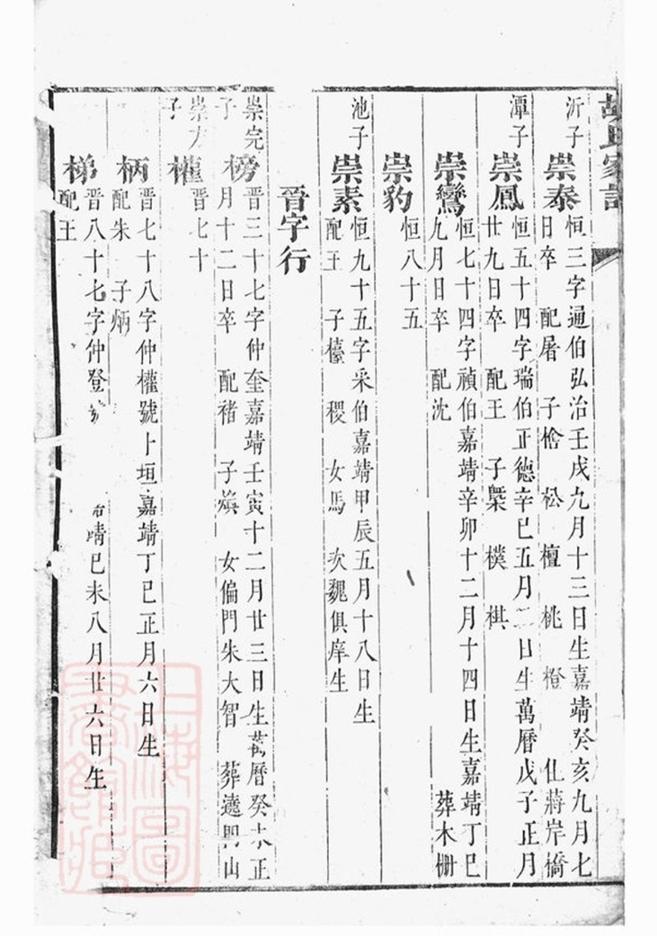 胡氏家譜
沂子 崇泰 恒三字通伯弘治壬戌九月十三日生嘉靖癸亥九月七
日卒 配屠 子檜 松 檀 桃 橙 仩蔣岸橋
潭子 崇鳳 恒五十四字瑞伯正德辛巳五月二日生萬曆戊子正月
廿九日卒 配王 子櫱 樸 祺
崇鸞 恒七十四字禎伯嘉靖辛卯十二月十四日生嘉靖丁巳
九月日卒 配沈 葬木柵
崇豹 恒八十五
池子 崇素 恒九十五字采伯嘉靖甲辰五月十八日生
配王 子檯 稷 女馬 次魏俱庠生
晉字行
崇完子 榜 晉三十七字仲奎嘉靖壬寅十二月廿三日生萬曆癸未正
月十二日卒 配褚 子熿 女偏門朱大智 葬遶門山
崇方子 權 晉七十
柄 晉七十八字仲權號上垣嘉靖丁巳正月六日生
配朱 子炳
梯 晉八十七字仲登 靖己未八月廿六日生
配王
上海圖書館藏